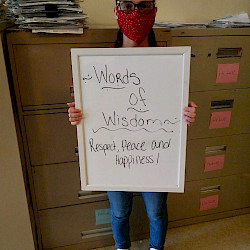 ~Words
of
Wisdom~
Respect, Peace and
Happiness!